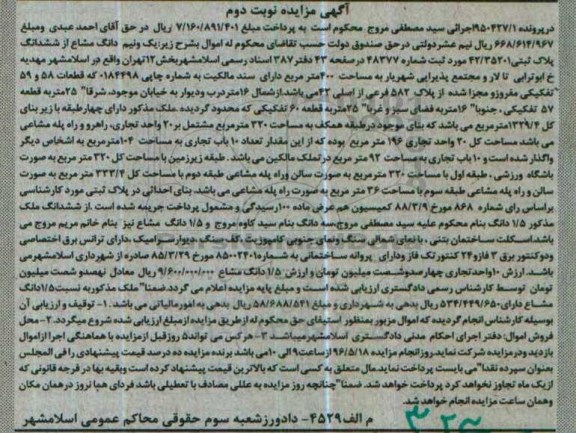 آگهی مزایده نوبت دوم
درپرونده ۹۵۰۴۲۷/۱اجرائی سید مصطفی مروج محکوم است به پرداخت مبلغ ۷/۱۶۰/۸۹۱/۴۰۱ ریال در حق آقای احمد عبدی ومبلغ
۶۶۸/۶۱۴/۹۶۷ ریال نیم عشردولتی درحق صندوق دولت حسب تقاضای محکوم له اموال بشرح زیر:یک ونیم دانگ مشاع از ششدانگ
پلاک ثبتی۴۲/۳۵۲۰۱ مورد ثبت شماره ۴۸۳۷۷ درصفحه ۴۳ دفتر۳۸۷ اسناد رسمی اسلامشهربخش۱۲تهران واقع در اسلامشهر مهدیه
خ ابوترابی تا لار و مجتمع پذیرایی شهریار به مساحت ۴۰۰متر مربع دارای سند مالکیت به شماره چاپی ۰۱۸۴۴۹۸ که قطعات ۵۸ و ۵۹
تفکیکی مفروزو مجزا شده از پلاک ۵۸۲ فرعی از اصلی ۴۲می باشد.ازشمال ۱۶متردرب ودیوار به خیابان موجود، شرقا" ۲۵متربه قطعه
۵۷ تفکیکی ، جنوبا" ۱۶متربه فضای سبز و غربا" ۲۵متربه قطعه ۶۰ تفکیکی که محدود گردیده .ملک مذکور دارای چهارطبقه با زیر بنای
کل ۱۳۲۹/۴مترمربع می باشد که بنای موجود درطبقه همکف به مساحت ۳۲۰ مترمربع مشتمل بر۲۰ واحد تجاری، راهرو و راه پله مشاعی
می باشد مساحت کل ۲۰ واحد تجاری ۱۹۶ متر مربع بوده که از این مقدار تعداد ۱۰ باب تجاری به مساحت ۱۰۴مترمربع به اشخاص دیگر
واگذار شده است و ۱۰باب تجاری به مساحت ۹۲ متر مربع در تملک مالکین می باشد . طبقه زیرزمین با مساحت کل ۳۲۰ متر مربع به صورت
باشگاه ورزشی ، طبقه اول با مساحت ۳۲۰ مترمربع به صورت سالن وراه پله مشاعی طبقه دوم با مساحت کل ۳۳۳/۴ متر مربع به صورت
سالن و راه پله مشاعی طبقه سوم با مساحت ۳۶ متر مربع به صورت راه پله مشاعی می باشد. بنای احداثی در پلاک ثبتی مورد کارشناسی
براساس رای شماره ۸۶۸ مورخ ۸۸/۳/۹ کمیسیون هم عرض ماده ۱۰۰رسیدگی و مشمول پرداخت جریمه شده است .از ششدانگ ملک
مذکور ۱/۵ دانگ بنام محکوم علیه سید مصطفی مروج،سه دانگ بنام سید کاوه مروج و ۱/۵ دانگ مشاع نیز بنام خانم مریم مروج می
باشد.اسکلت ساختمان بتنی ، با نمای شمالی سنگ ونمای جنوبی کامپوزیت ،کف سنگ ،دیوار سرامیک ،دارای ترانس برق اختصاصی
ودوکنتور برق ۳ فازو۲۴ کنتورتک فاز ودارای پروانه ساختمانی به شماره۸۵۰۰۲۴۰۱ مورخ ۸۵/۳/۲۹ صادره از شهرداری اسلامشهرمی
باشد. ارزش ۱۰واحدتجاری چهارصدوشصت میلیون تومان و ارزش ۱/۵دانگ مشاع ۹/۶۰۰/۰۰۰/۰۰۰ ریال معادل نهصدو شصت میلیون
تومان توسط کارشناس رسمی دادگستری ارزیابی شده است و مبلغ پایه مزایده اعلام می گردد.ضمنا" ملک مذکوربه نسبت۱/۵دانگ
مشاع دارای۵۳۴/۴۴۹/۶۵۰ ریال بدهی به شهرداری و مبلغ ۵۸/۶۸۸/۵۴۱ ریال بدهی به امورمالیاتی می باشد. ۱- توقیف و ارزیابی آن
بوسیله کارشناس انجام گردیده که اموال مزبور بمنظور استیفای حق محکوم له ازطریق مزایده ازمبلغ ارزیابی شده شروع میگردد.۲- محل
فروش اموال: دفتر اجرای احکام مدنی دادگستری اسلامشهرمیباشد ۳- هرکس می تواند۵ روزقبل ازمزایده با هماهنگی اجرا ازاموال
بازدید ودرمزایده شرکت نماید.روزانجام مزایده ۹۶/۵/۱۸ ازساعت۹ الی ۱۰می باشد برنده مزایده ده درصد قیمت پیشنهادی رافی المجلس
بعنوان سپرده نقدا"می بایست پرداخت نماید.مال متعلق به کسی است که بالاترین قیمت پیشنهاد کرده است وبقیه بها در فرجه قانونی که
ازیک ماه تجاوز نخواهد کرد پرداخت خواهد شد. ضمنا"چنانچه روز مزایده به عللی مصادف با تعطیلی باشد فردای همانروز درهمان مکان
وهمان ساعت مزایده انجام خواهد شد.
م الف۴۵۲۹- دادورزشعبه سوم حقوقی محاکم عمومی اسلامشهر